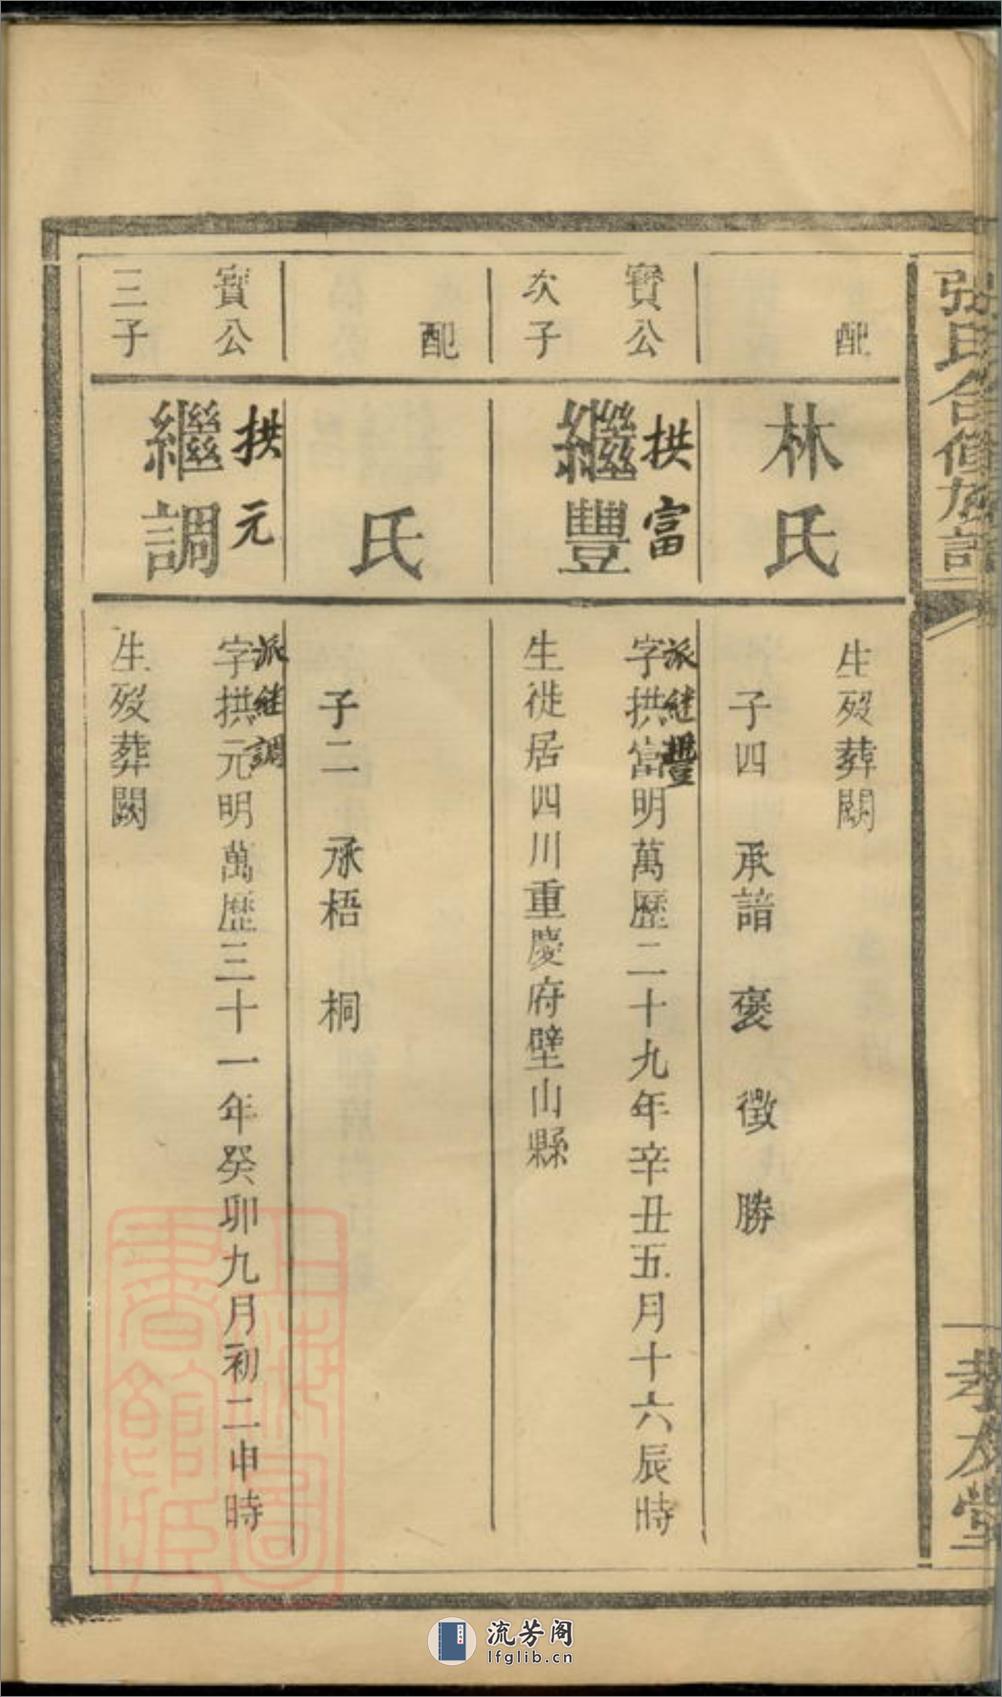 張氏合修族譜
孝友堂
配
林氏
生歿葬闕
子四 承諳 褒 徴 勝
寶公
次子
拱富
繼豐
派継豐
字拱富明萬歷二十九年辛丑五月十六辰時
生徙居四川重慶府壁山縣
配
氏
子二 承梧 桐
寶公
三子
拱元
繼調
派継調
字拱元明萬歷三十一年癸卯九月初二申時
生歿葬闕
上海圖書館藏
流芳阁
lfglib.cn